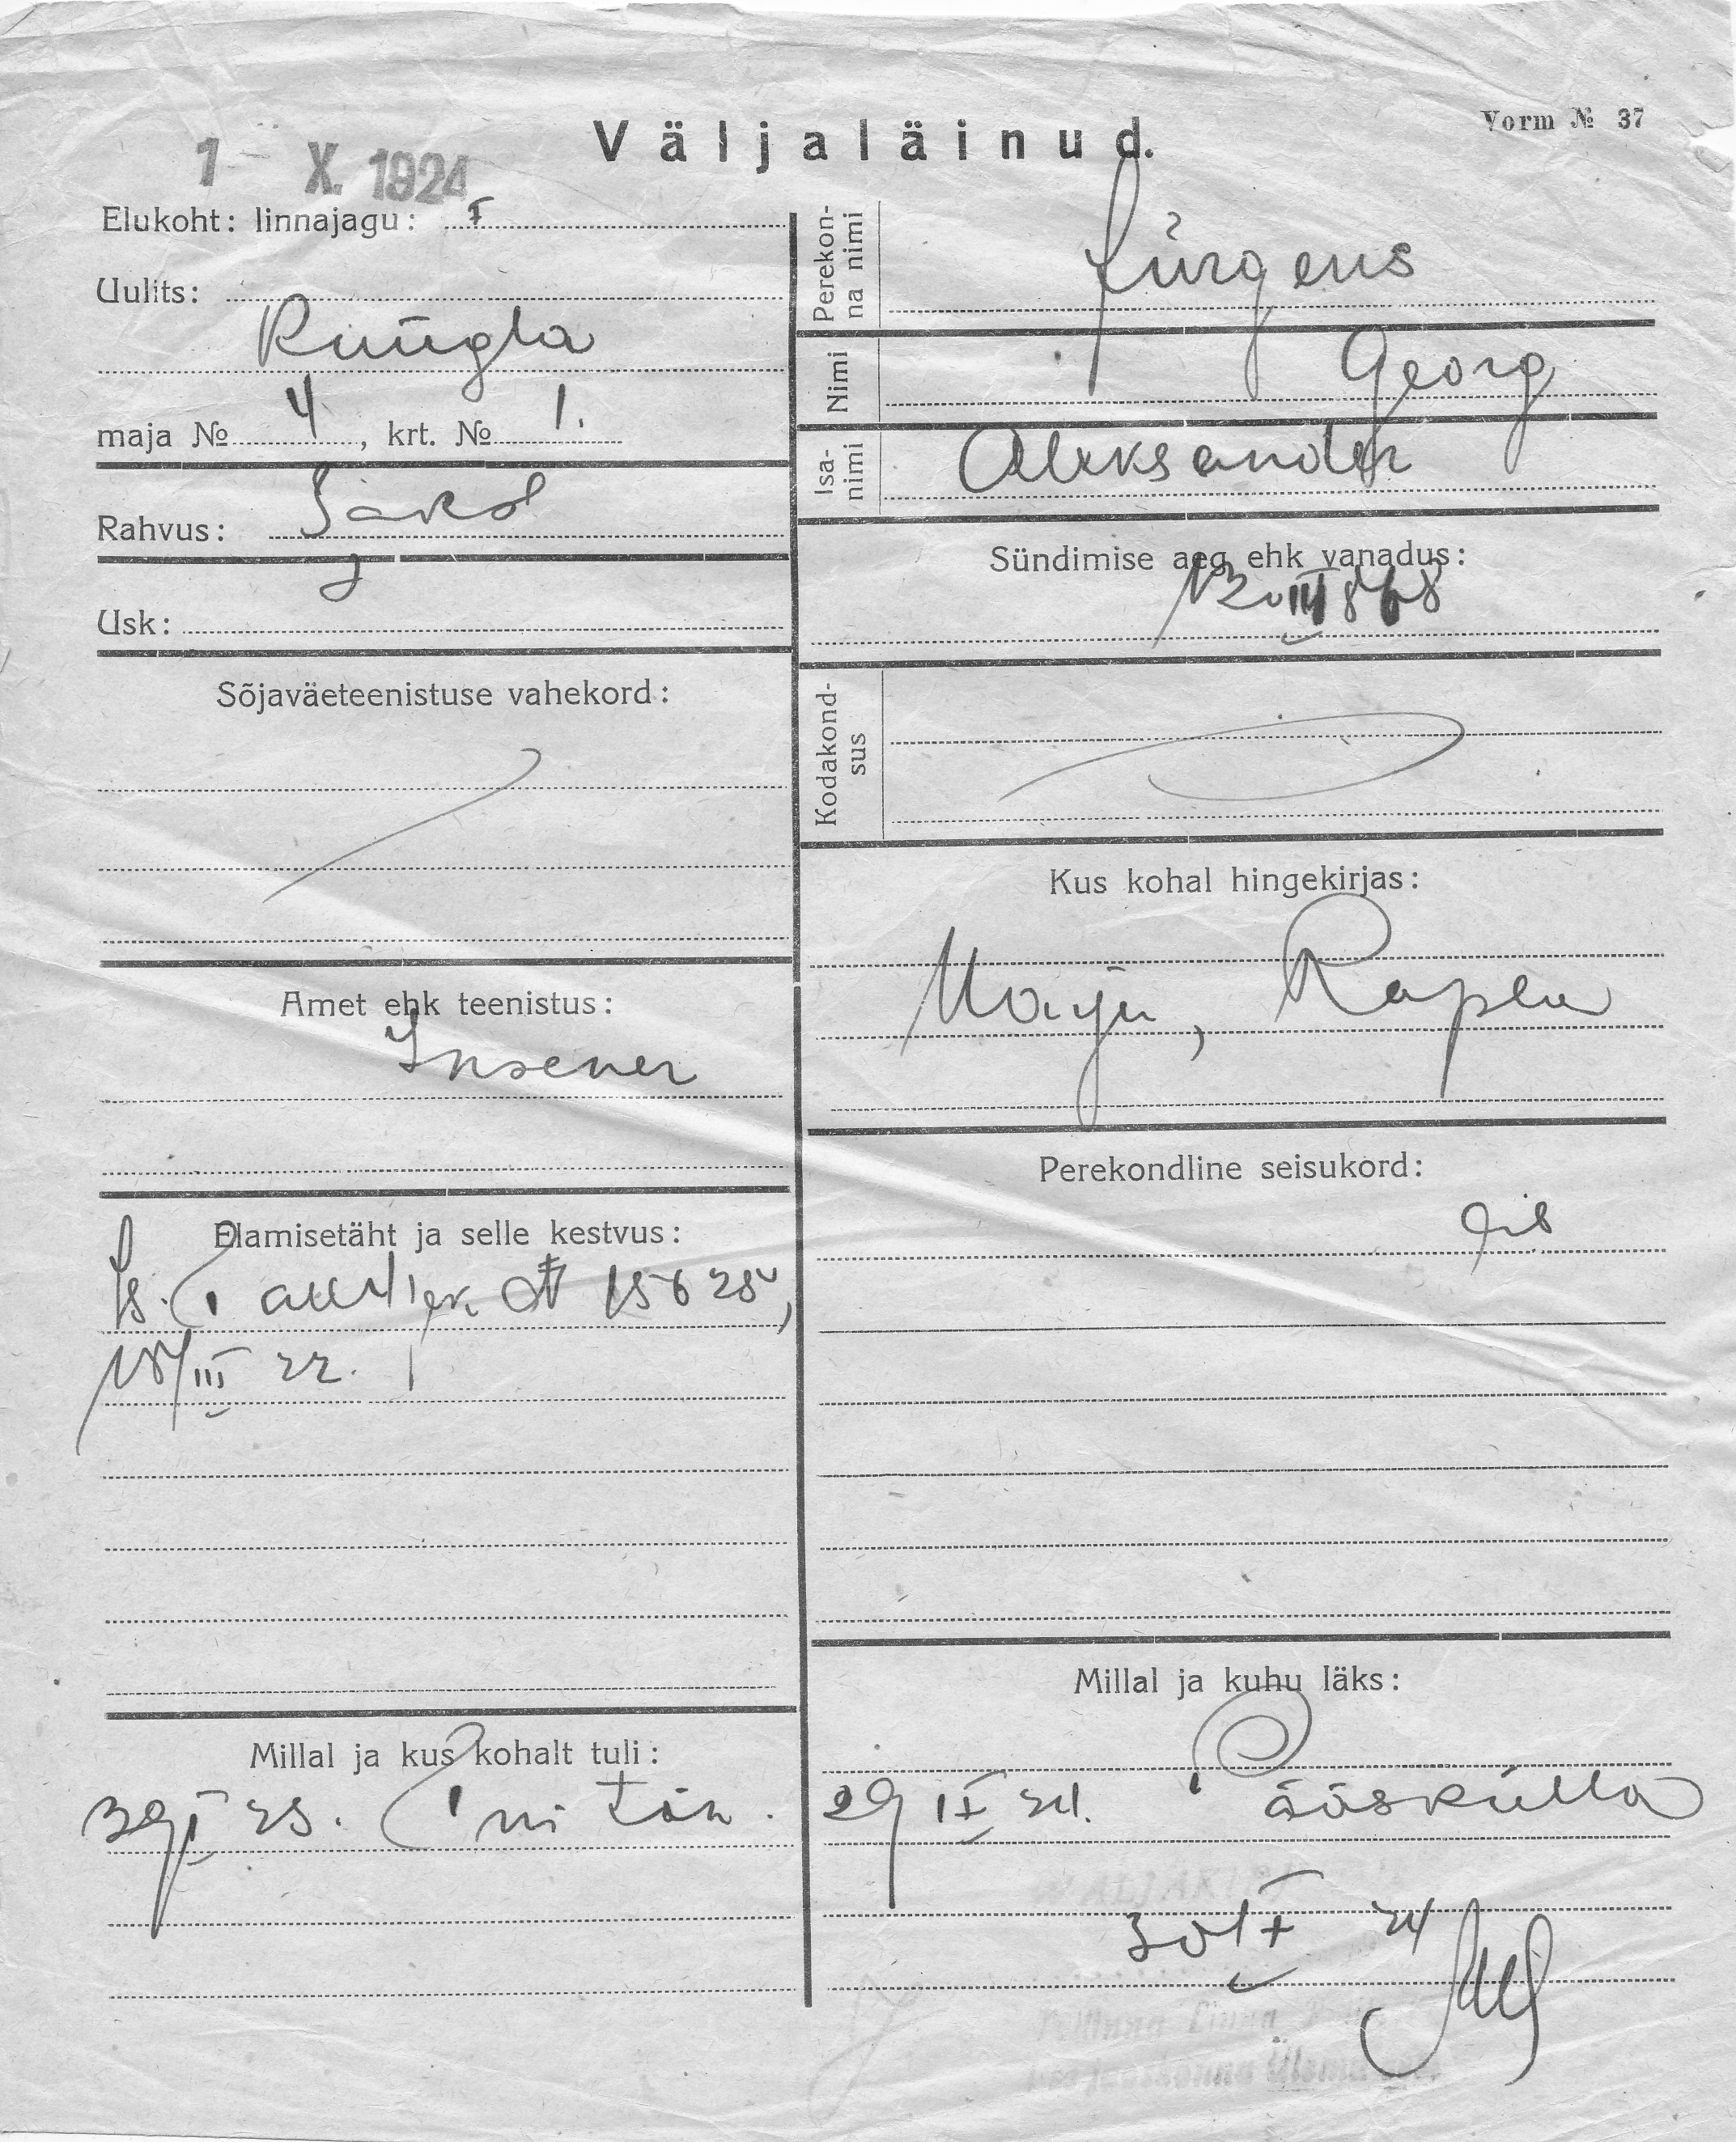 Väljaläinud.
Vorm № 37
1 X. 1924
Elukoht: linnajagu: I
Uulits:
Rüütli
maja № 4, krt. № 1.
Rahvus: Saksl
Usk:
Sõjaväeteenistuse vahekord:
Amet ehk teenistus:
Insener
Elamisetäht ja selle kestvus:
15625,
18/III 22.
Millal ja kus kohalt tuli:
29 I 23.
Perekon-
na nimi
Jürgens
Nimi
Georg
Isa-
nimi
Aleksander
Sündimise aeg ehk vanadus:
Kodakond-
sus
Kus kohal hingekirjas:
Harju, Rapla
Perekondline seisukord:
Millal ja kuhu läks:
29 IX 24. Pääsküla
30 IX 24